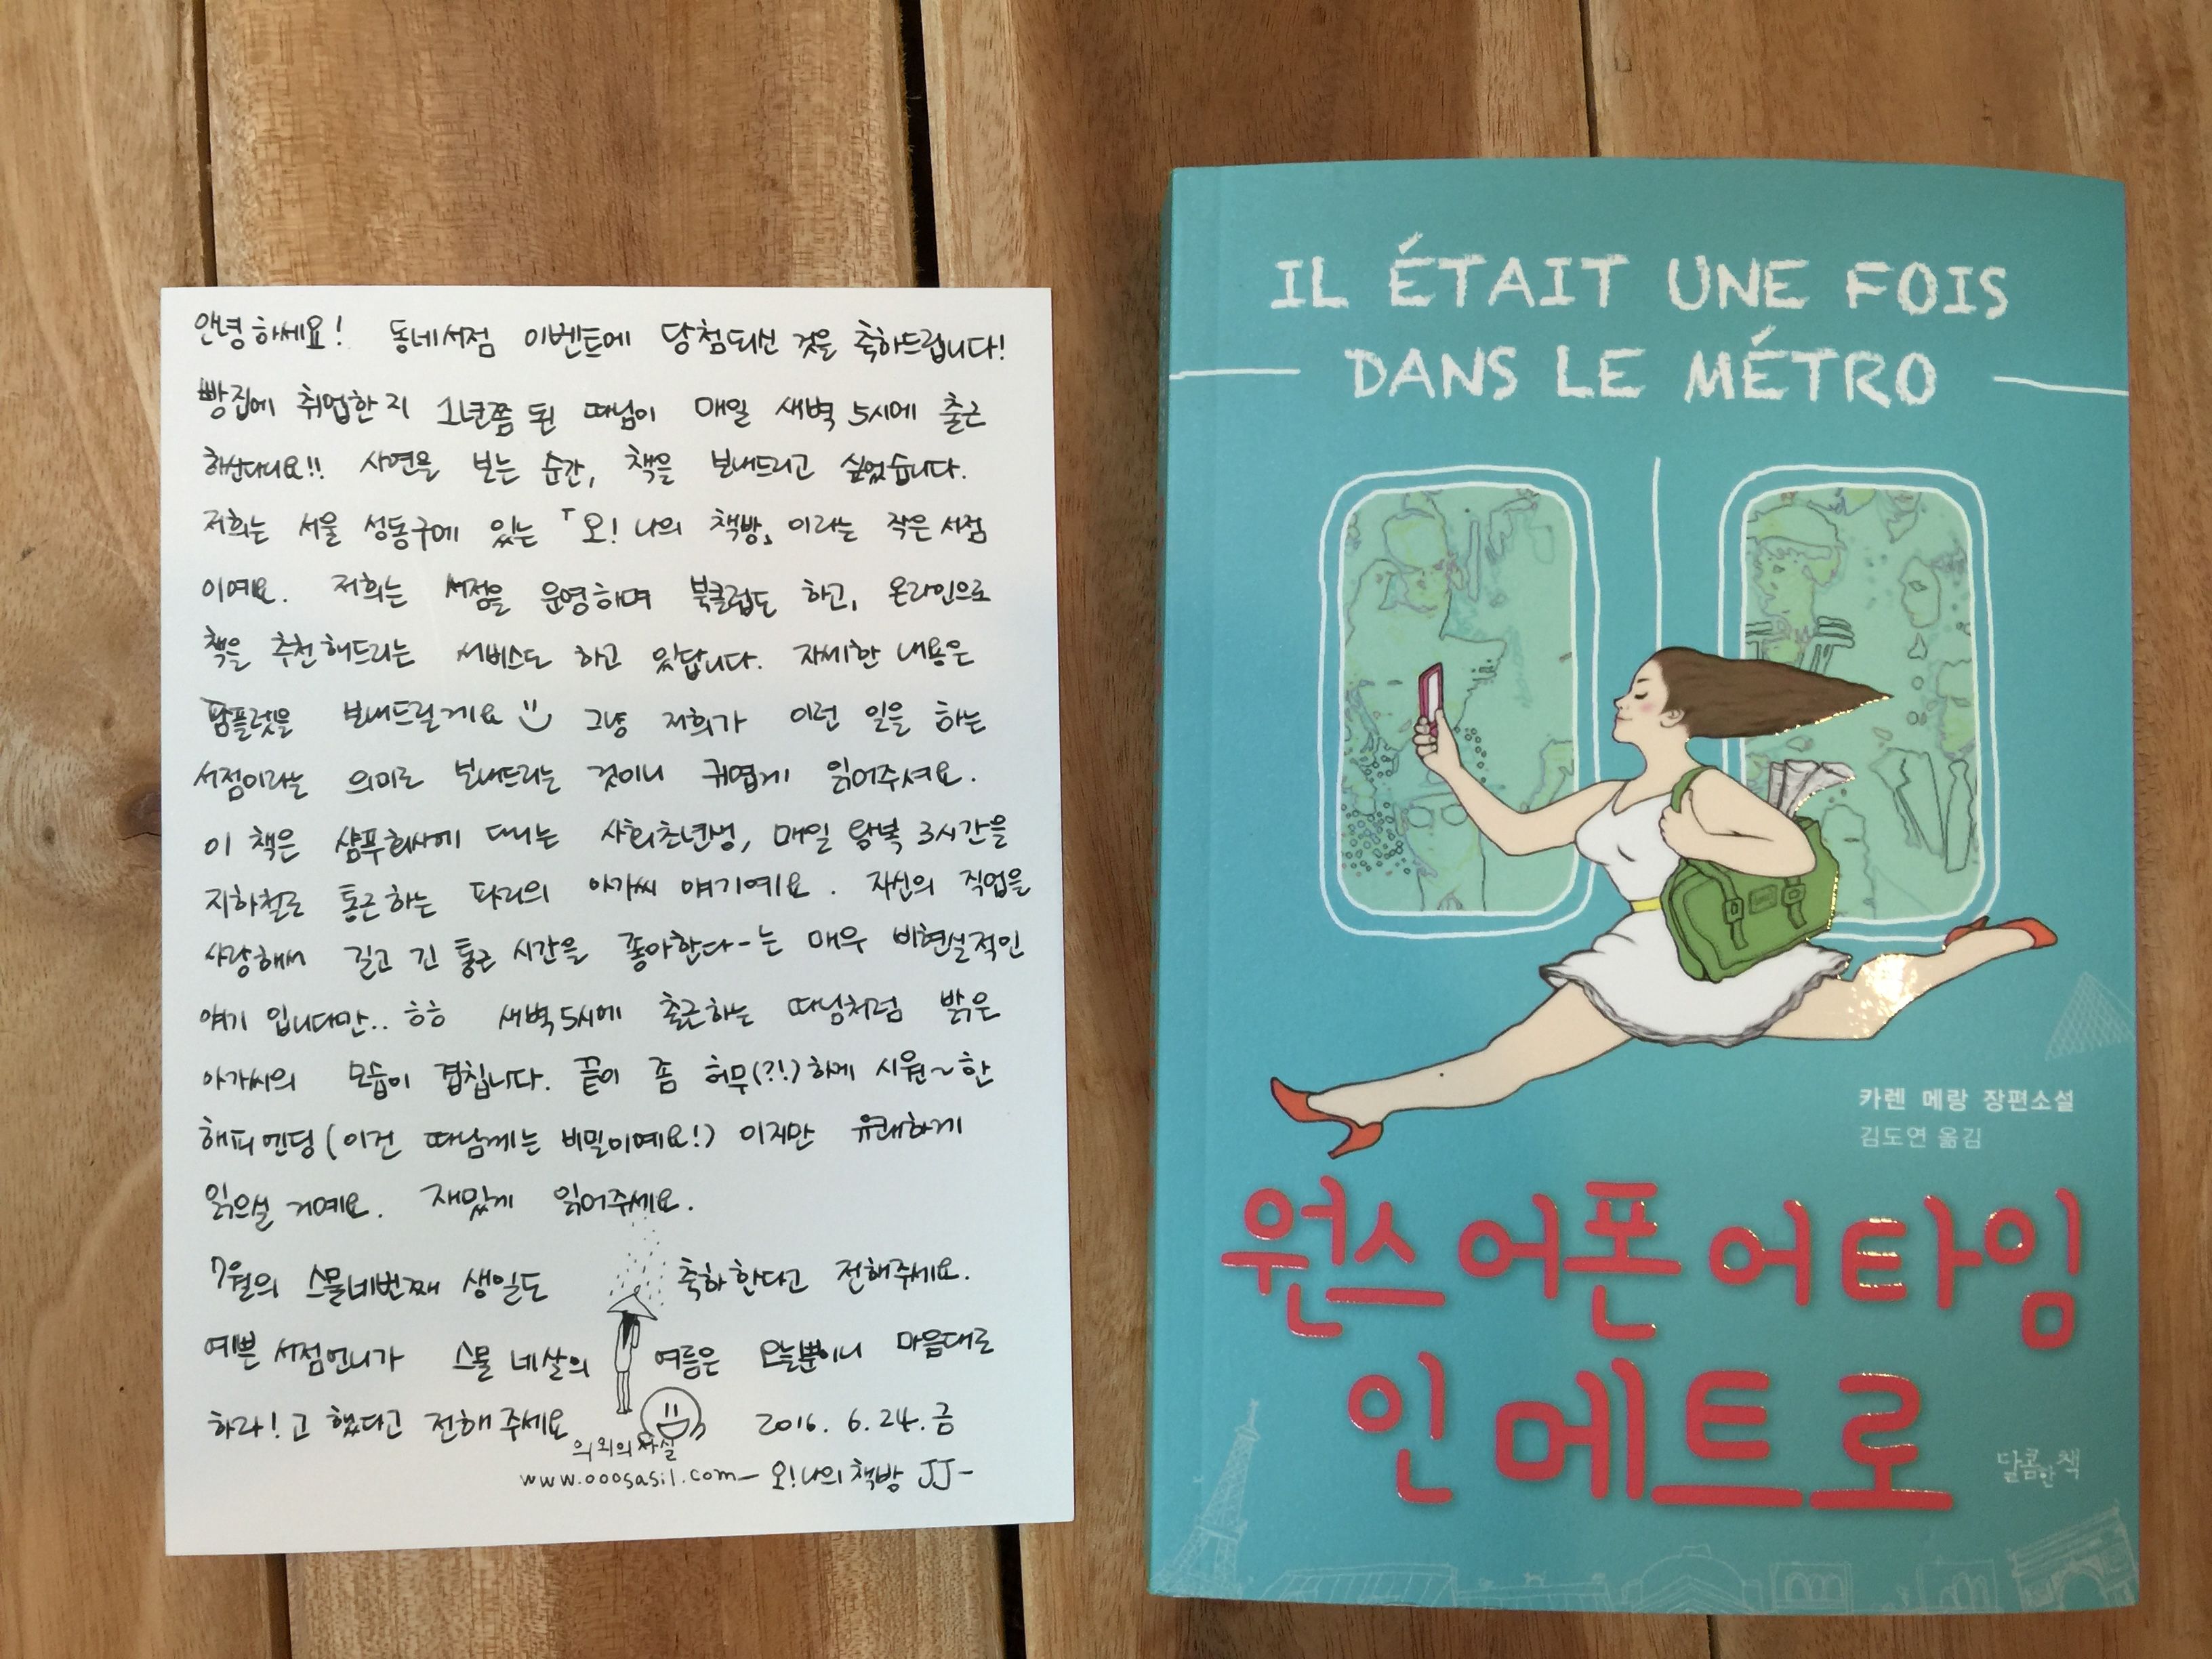 안녕하세요! 동네서점 이벤트에 당첨되신 것을 축하드립니다!
빵집에 취업한지 1년쯤 된 따님이 매일 새벽 5시에 출근
하신다니요!! 사연을 보는 순간, 책을 보내드리고 싶었습니다.
저희는 서울 성동구에 있는 「오! 나의 책방」이라는 작은 서점
이예요. 저희는 서점을 운영하며 북클럽도 하고, 온라인으로
책을 추천해드리는 서비스도 하고 있답니다. 자세한 내용은
팜플렛을 보내드릴게요 그냥 저희가 이런 일을 하는
서점이라는 의미로 보내드리는 것이니 귀엽게 읽어주셔요.
이 책은 샴푸회사에 다니는 사회초년생, 매일 왕복 3시간을
지하철로 통근하는 파리의 아가씨 얘기예요. 자신의 직업을
사랑해서 길고 긴 통근 시간을 좋아한다-는 매우 비현실적인
얘기 입니다만.. ㅎㅎ 새벽5시에 출근하는 따님처럼 밝은
아가씨의 모습이 겹칩니다. 끝이 좀 허무(?!)하게 시원~한
해피엔딩(이건 따님께는 비밀이예요!) 이지만 유쾌하게
읽으실 거예요. 재밌게 읽어주세요.
7월의 스물네번째 생일도 축하한다고 전해주세요.
예쁜 서점언니가 스물 네살의 여름은 오늘뿐이니 마음대로
하라!고 했다고 전해주세요 2016. 6. 24. 금
의외의사실
www.ooosasil.com - 오!나의책방 JJ-
IL ÉTAIT UNE FOIS
DANS LE MÉTRO
카렌 메랑 장편소설
김도연 옮김
원스 어폰 어 타임
인 메트로
달콤한책